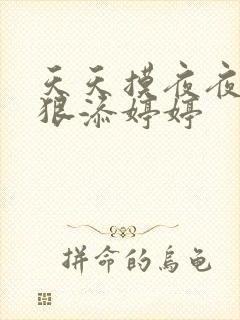 天天摸夜夜
狠添婷婷
拼命的烏龟